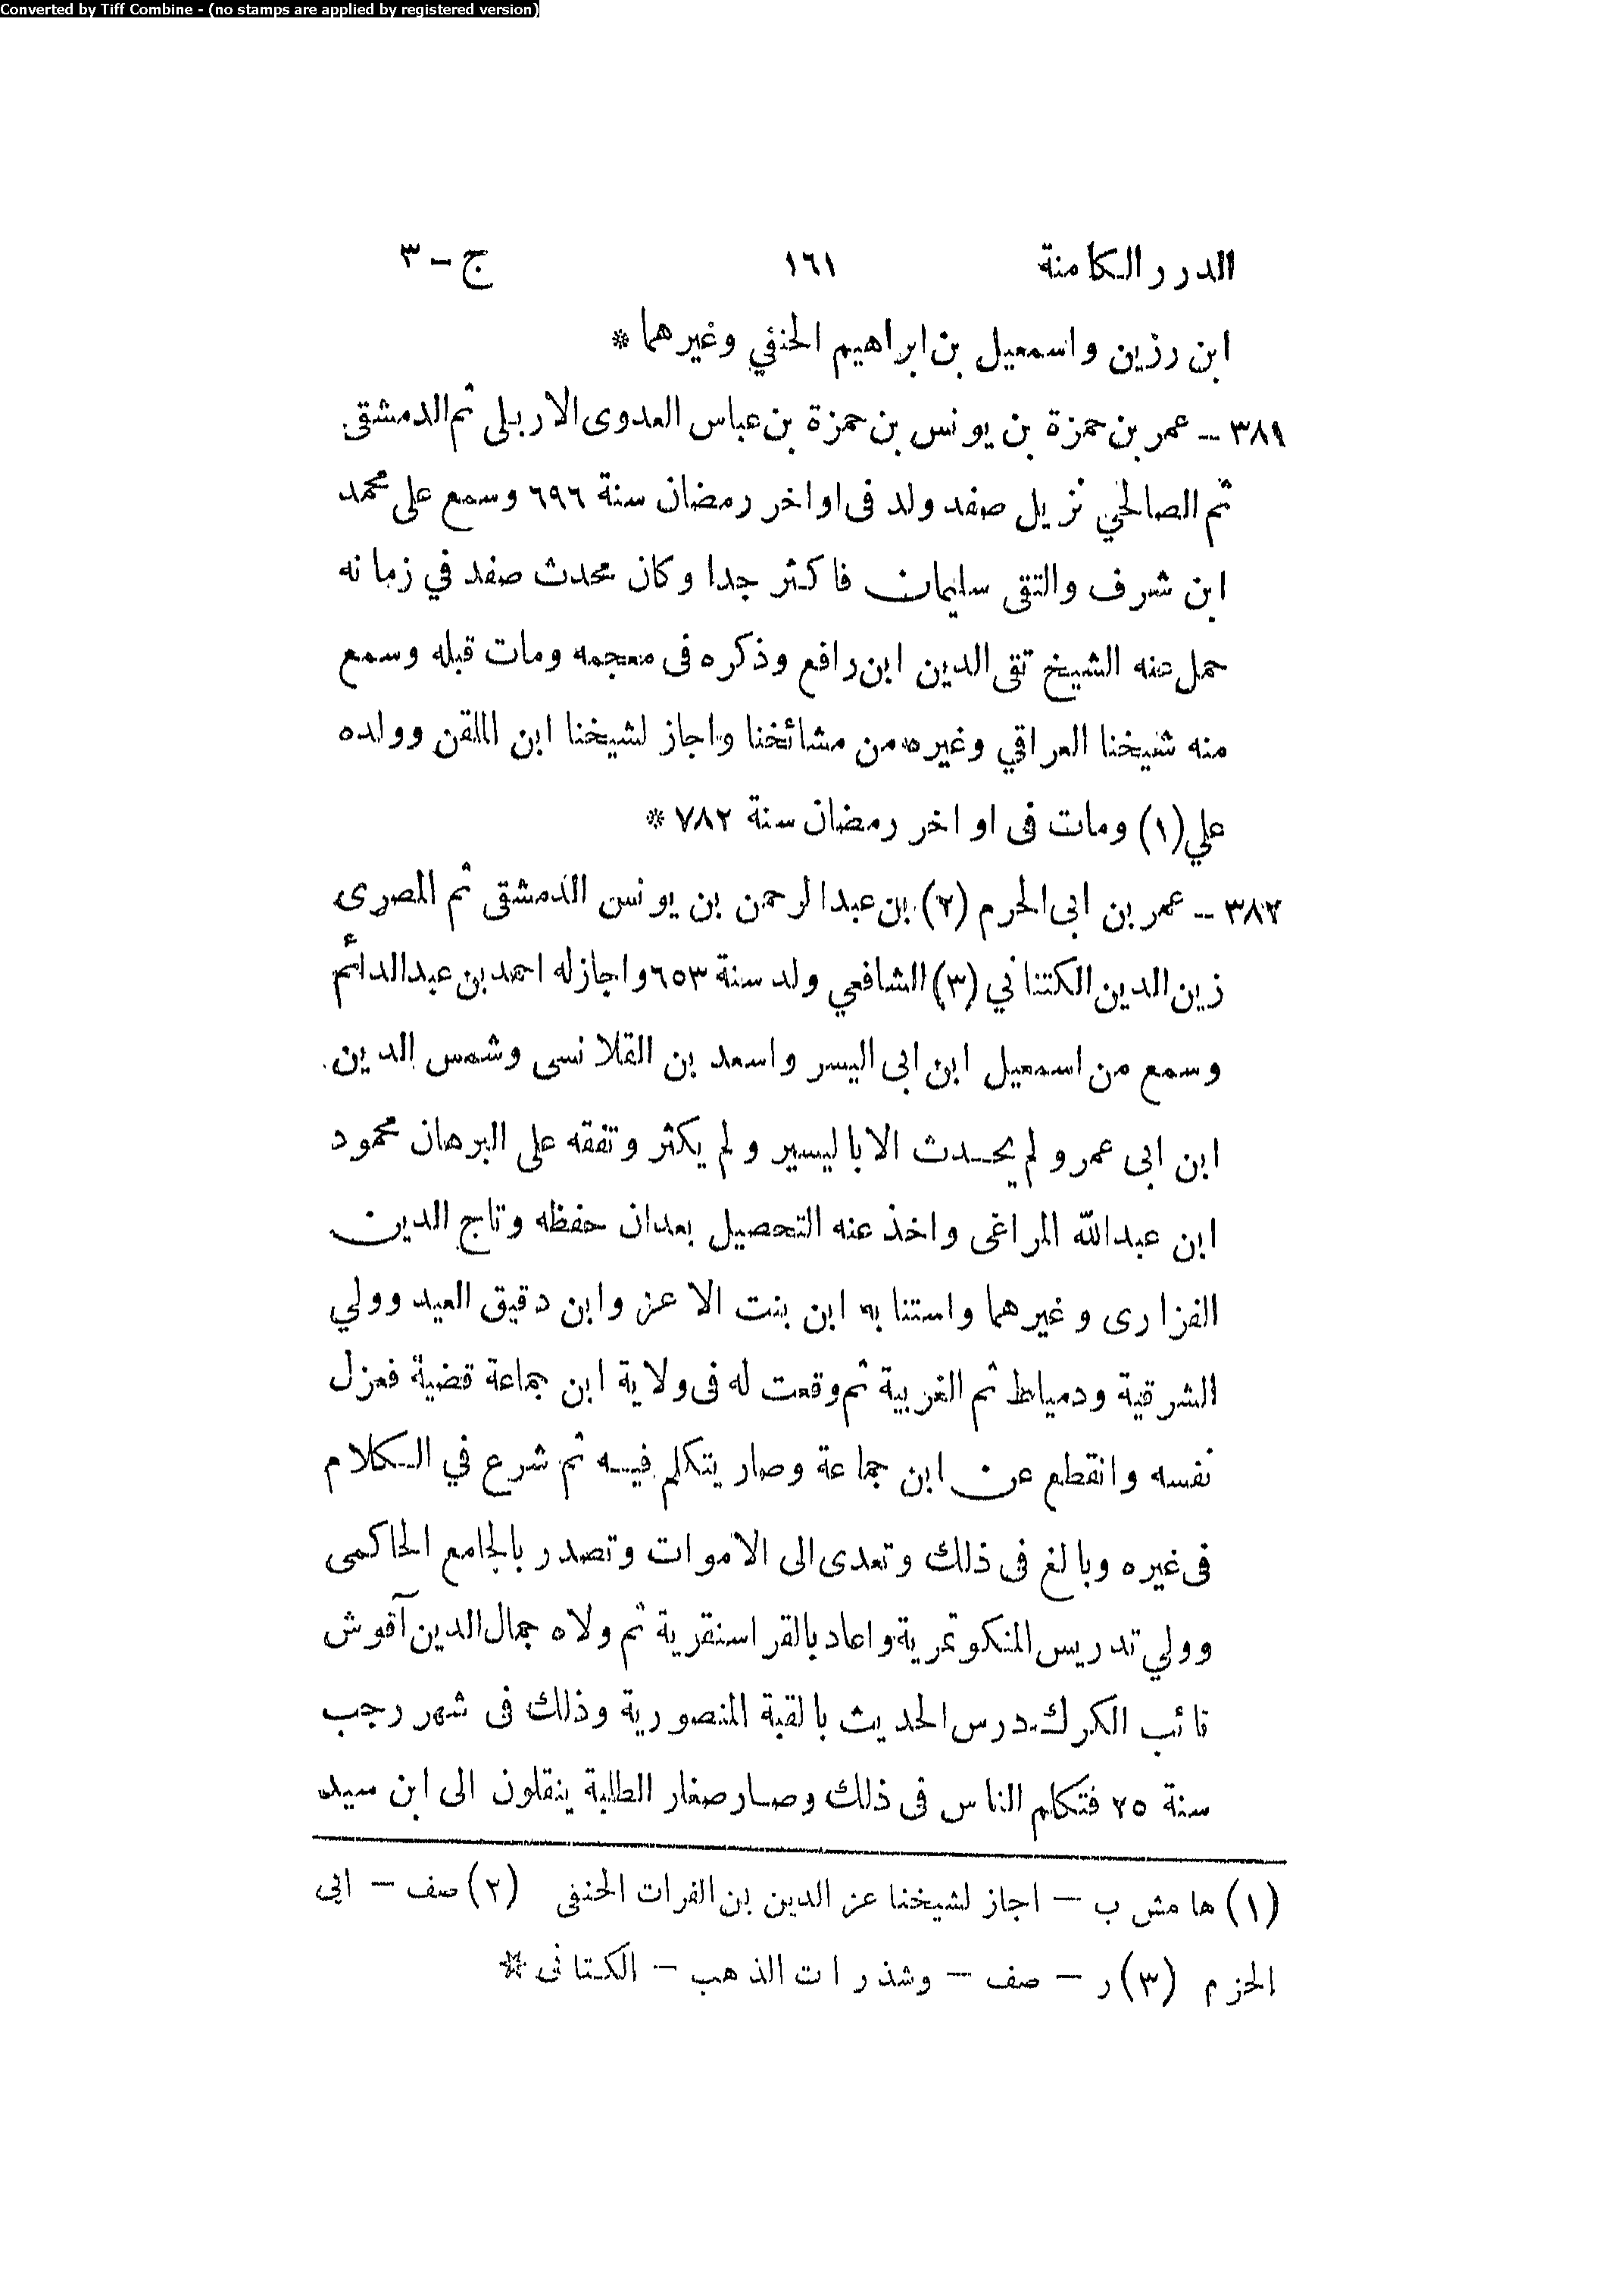 Converted by Tiff Combine - (no stamps are applied by registered version)
الدرر الكامنة ١٦١ ج – ٣
ابن رزين واسمعيل بن ابراهيم الحنفي وغيرهما *
٣٨١ – عمر بن حمزة بن يونس بن حمزة بن عباس العدوى الاربلى ثم الدمشقى
ثم الصالحي نزيل صفد ولد فى اواخر رمضان سنة ٦٩٦ وسمع على محمد
ابن شرف والتقى سليمان فاكثر جدا وكان محدث صفد في زمانه
حمل عنه الشيخ تقى الدين ابن رافع وذكره فى معجمه ومات قبله وسمع
منه شيخنا العراقي وغيره من مشائخنا واجاز لشيخنا ابن الملقن وولده
علي (١) ومات فى اواخر رمضان سنة ٧٨٢ *
٣٨٢ – عمر بن ابى الحرم (٢) بن عبد الرحمن بن يونس الدمشقى ثم المصرى
زين الدين الكتناني (٣) الشافعي ولد سنة ٦٥٣ واجاز له احمد بن عبد الدائم
وسمع من اسمعيل ابن ابى اليسر واسعد بن القلانسى وشمس الدين
ابن ابى عمر ولم يحدث الا باليسير ولم يكثر وتفقه على البرهان محمود
ابن عبد الله المراغى واخذ عنه التحصيل بعد ان حفظه وتاج الدين
الفزارى وغيرهما واستنابه ابن بنت الاعز وابن دقيق العيد وولي
الشرقية ودمياط ثم الغربية ثم وقعت له فى ولاية ابن جماعة قضية فعزل
نفسه وانقطع عن ابن جماعة وصار يتكلم فيه ثم شرع في الكلام
فى غيره وبالغ فى ذلك وتعدى الى الاموات وتصدر بالجامع الحاكمى
وولي تدريس المنكوتمرية واعاد بالقراسنقرية ثم ولاه جمال الدين آقوش
نائب الكرك درس الحديث بالقبة المنصورية وذلك فى شهر رجب
سنة ٢٥ فتكلم الناس فى ذلك وصار صغار الطلبة ينقلون الى ابن سيد
(١) هامش ب – اجاز لشيخنا عز الدين بن الفرات الحنفى (٢) صف – ابي
الحزم (٣) ر – صف – وشذرات الذهب – الكتانى *